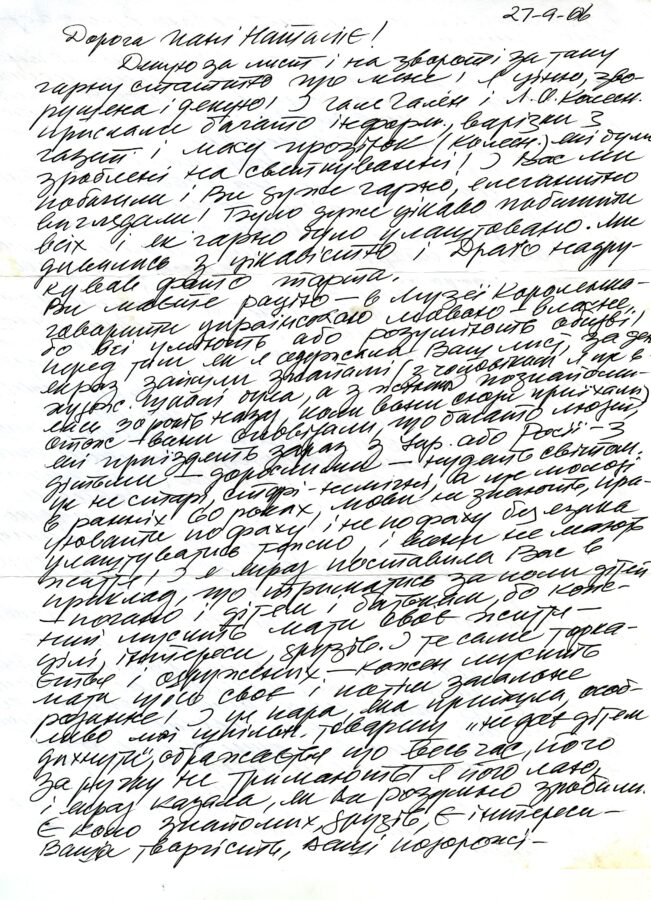 27-9-06
Дорога пані Наталіє!
Дякую за лист і на звороті за таку
гарну статтю про мене! Я ціную, зво-
рушена і дякую! І Галя Гален і Л.О. Колесн.
прислали багато інформ., варізки з
газет і масу прозірок (Колесн.) які були
зроблені на святкуванні! І Вас ми
побачили і Ви дуже гарно, елегантно
виглядали! Було дуже цікаво побачити
всіх і як гарно було улаштовано. Ми
дивились з цікавістю і Драґо надру-
кував фото
Ви маєте рацію — в Музеї Короленка
говорити українською мовою — власне,
бо всі уміють або розуміють обидві!
перед тим як я одержала Ваш лист, за день
якраз зайшли знайомі (з чоловіком я ще в
познайоми-
лись років назад, коли вони сюди приїхали)
отож — вони оповідали, що багато людей,
які приїздять зараз з Укр. або Росії — з
дітьми — дорослими — нудять світом,
ще не старі, старі - немічні, а ще молоді
в ранніх 60 роках, мови не знають, пра-
цювати по фаху і не по фаху без язика
улаштуватись тяжко і вони не мають
життя! І я якраз поставила Вас в
приклад, що триматись за поли дітей
— погано і дітям і батькам, бо кож-
ний мусить мати своє життя —
цілі, інтереси, друзів. І те саме торка-
ється і одружених — кожен мусить
мати щось своє і потім загальне
родинне! І ця пара, яка приїхала, особ-
ливо мої товариш „не дає дітям
дихнути", ображається що весь час, його
за ручку не тримають! Я його лаю,
і якраз казала, як Ви розумно зробили.
Є коло знайомих, друзів, є інтереси —
Ваша творчість, Ваші подорожі —